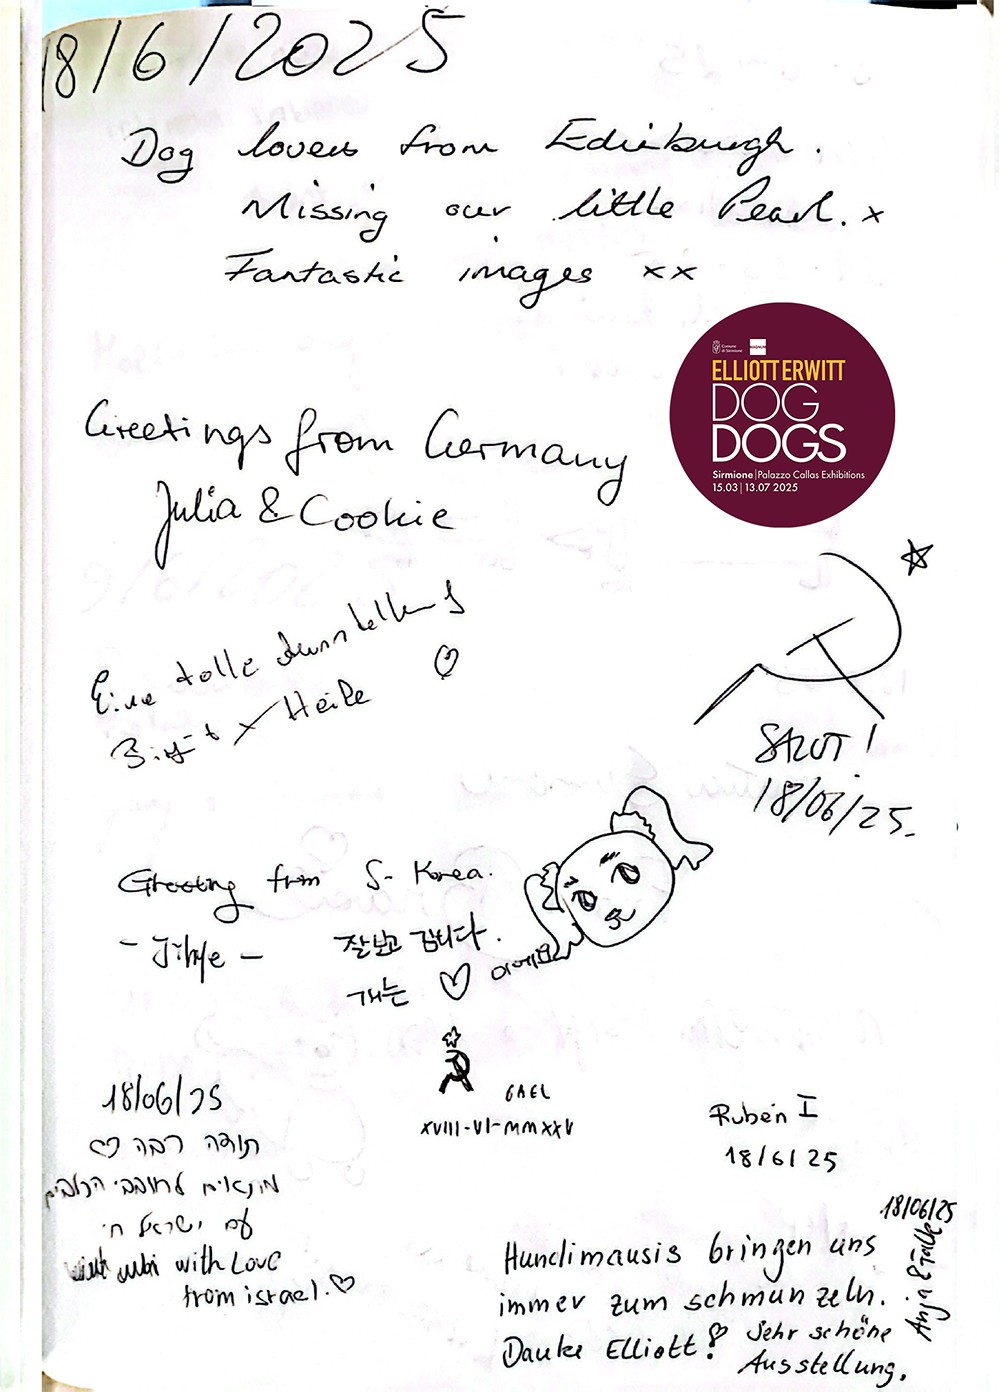 18/6/2025
Dog lovers from Edinburgh.
Missing our little Pearl. x
Fantastic images xx
Comune di Sirmione
MAGNUM
ELLIOTT ERWITT
DOG
DOGS
Sirmione | Palazzo Callas Exhibitions
15.03 | 13.07 2025
Greetings from Germany
Julia & Cookie
Eine tolle Ausstellung
Birgit x Heike
SALUT!
18/06/25.
Greeting from S-Korea.
- Jihye -
잘보고 갑니다.
개는 ♡ 이예요
GAEL
XVIII-VI-MMXXV
Rubén I
18/6/25
18/06/25
תודה רבה ♡
לחובבי הכלבים
עם ישראל חי
with Love
from israel. ♡
18/06/25
Anja & Falk
Hundimausis bringen uns
immer zum schmunzeln.
Danke Elliott! Sehr schöne
Ausstellung.